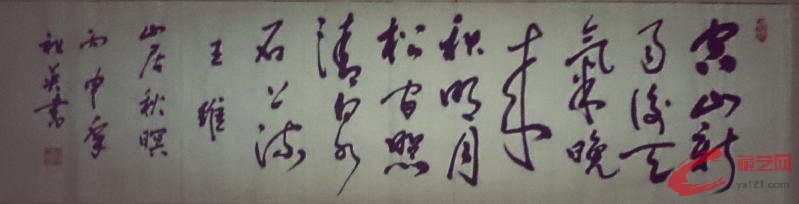 空山新
雨後天
氣晚
來
秋明月
松间照
清泉
石上流
王維
山居秋暝
丙申年
英書
艺网
ya121.com